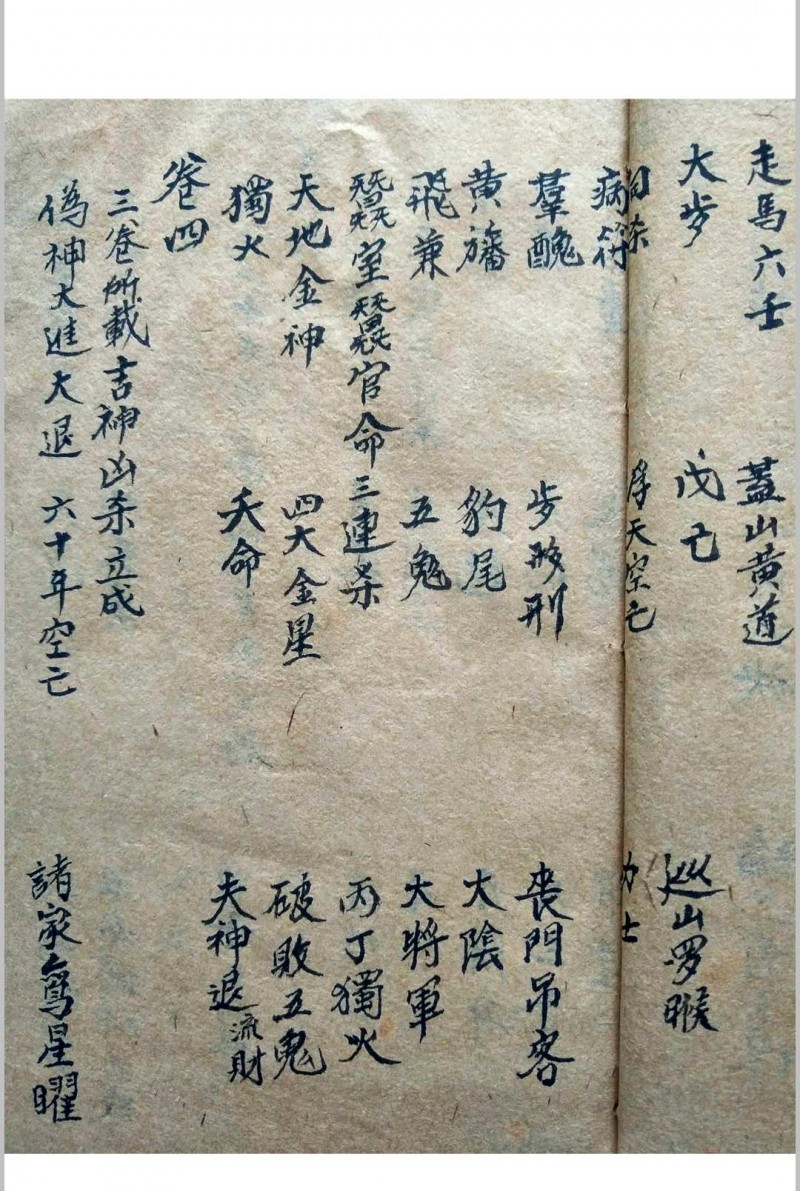 走馬六壬 蓋山黄道
大步 戊亡 巡山罗睺
天空亡 力士
病符
羣醜 步 刑 喪門吊客
黄旛 豹尾 大陰
飛兼 五鬼 大將軍
室 官命三連杀 丙丁獨火
天地金神 四大金星 破敗五鬼
獨火 夭命 夫神退流財
卷四
三卷所載吉神凶杀立成
偽神大進大退 六十年空亡 諸家 星曜